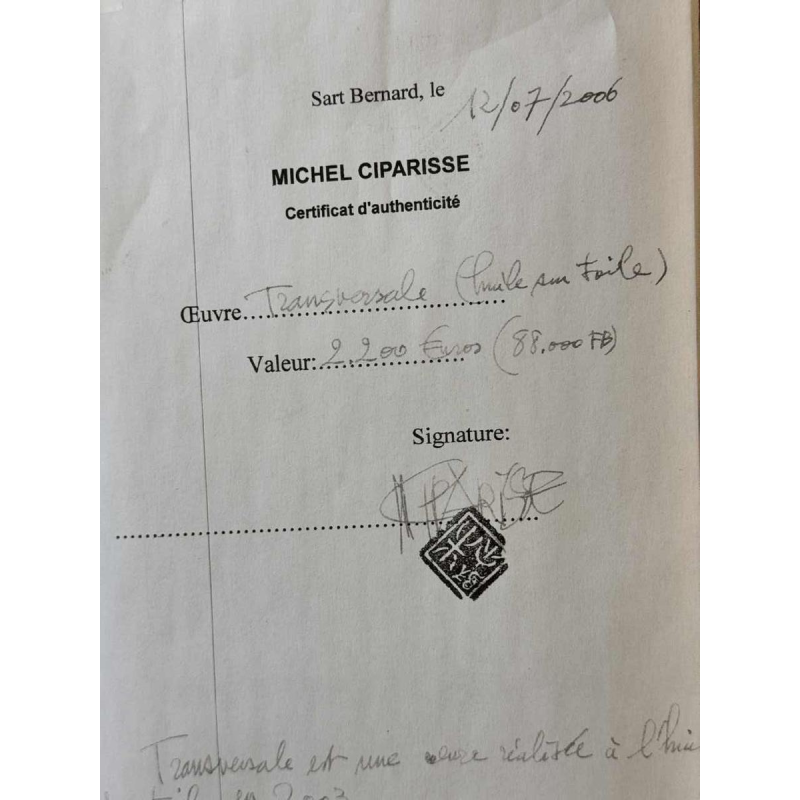 Sart Bernard, le 12/07/2006
MICHEL CIPARISSE
Certificat d'authenticité
Œuvre....Transversale (huile sur toile)
Valeur:..2.200 Euros (88.000 FB)
Signature:
CIPARISSE
Transversale est une œuvre réalisée à l'hui
2003